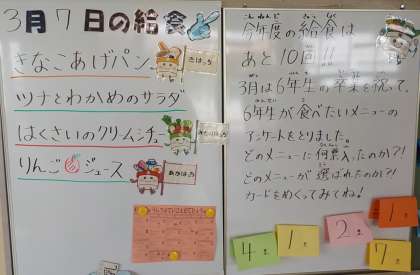 3月7日の給食
きなこあげパン
きはっぴ
ツナとわかめのサラダ
はくさいのクリームシチュー
みどりはっぴ
りんごジュース
あかはっぴ
今年度の給食は
あと10回!!
3月は6年生の卒業を祝って、
6年生が食べたいメニューの
アンケートをとりました。
どのメニューに何票入ったのか?!
どのメニューが選ばれたのか?!
カードをめくってみてね!
4
1
2
1
7